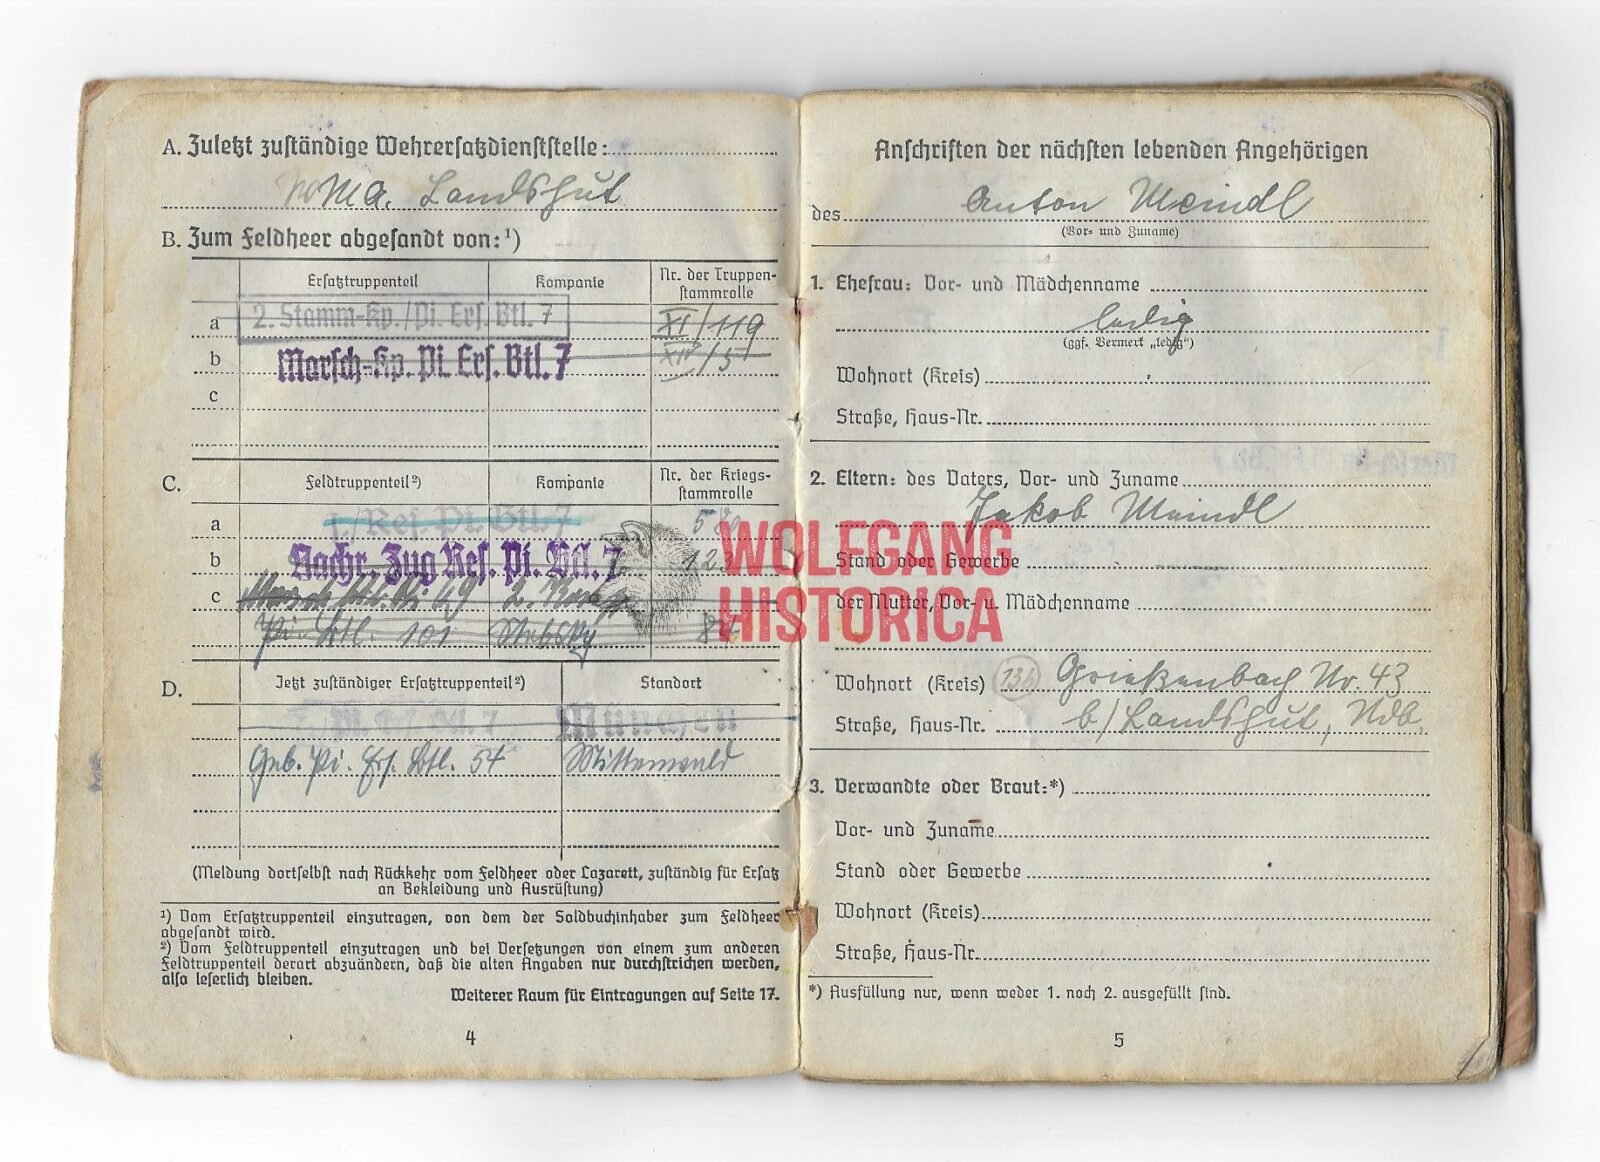 A. Zuletzt zuständige Wehrersatzdienststelle:
W.M.A. Landshut
B. Zum Feldheer abgesandt von:¹)
Ersatztruppenteil Kompanie Nr. der Truppen-
stammrolle
a 2. Stamm-Kp./Pi. Ers. Btl. 7 XI/119
b Marsch-Kp. Pi. Ers. Btl. 7 XII/5
c
C. Feldtruppenteil²) Kompanie Nr. der Kriegs-
stammrolle
a 1./Res. Pi. Btl. 7
b Nachr. Zug Res. Pi. Btl. 7 123
c
Pi. Btl. 101
D. Jetzt zuständiger Ersatztruppenteil²) Standort
München
Geb. Pi. Ers. Btl. 54 Mittenwald
(Meldung dortselbst nach Rückkehr vom Feldheer oder Lazarett, zuständig für Ersatz
an Bekleidung und Ausrüstung)
¹) Vom Ersatztruppenteil einzutragen, von dem der Soldbuchinhaber zum Feldheer
abgesandt wird.
²) Vom Feldtruppenteil einzutragen und bei Versetzungen von einem zum anderen
Feldtruppenteil derart abzuändern, daß die alten Angaben nur durchstrichen werden,
also leserlich bleiben.
Weiterer Raum für Eintragungen auf Seite 17.
4
Anschriften der nächsten lebenden Angehörigen
des Anton Meindl
(Vor- und Zuname)
1. Ehefrau: Vor- und Mädchenname
ledig
(ggf. Vermerk „ledig“)
Wohnort (Kreis)
Straße, Haus-Nr.
2. Eltern: des Vaters, Vor- und Zuname
Jakob Meindl
Stand oder Gewerbe
der Mutter, Vor- u. Mädchenname
Wohnort (Kreis) 13b Grießenbach Nr. 43
Straße, Haus-Nr. b/Landshut, Ndb.
3. Verwandte oder Braut:*)
Vor- und Zuname
Stand oder Gewerbe
Wohnort (Kreis)
Straße, Haus-Nr.
*) Ausfüllung nur, wenn weder 1. noch 2. ausgefüllt sind.
5
WOLFGANG
HISTORICA